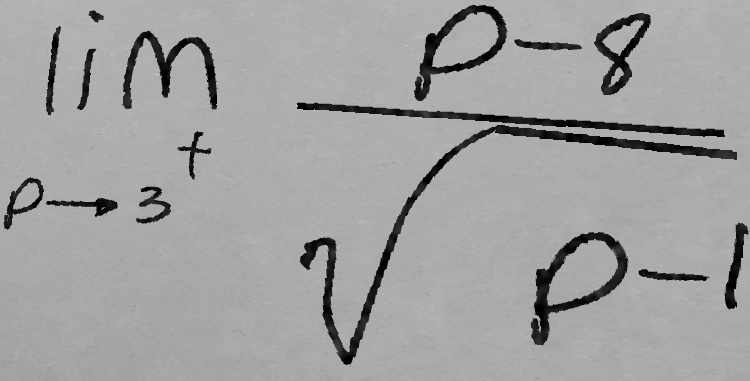 lim p → 3⁺ (p - 8) / √(p - 1)